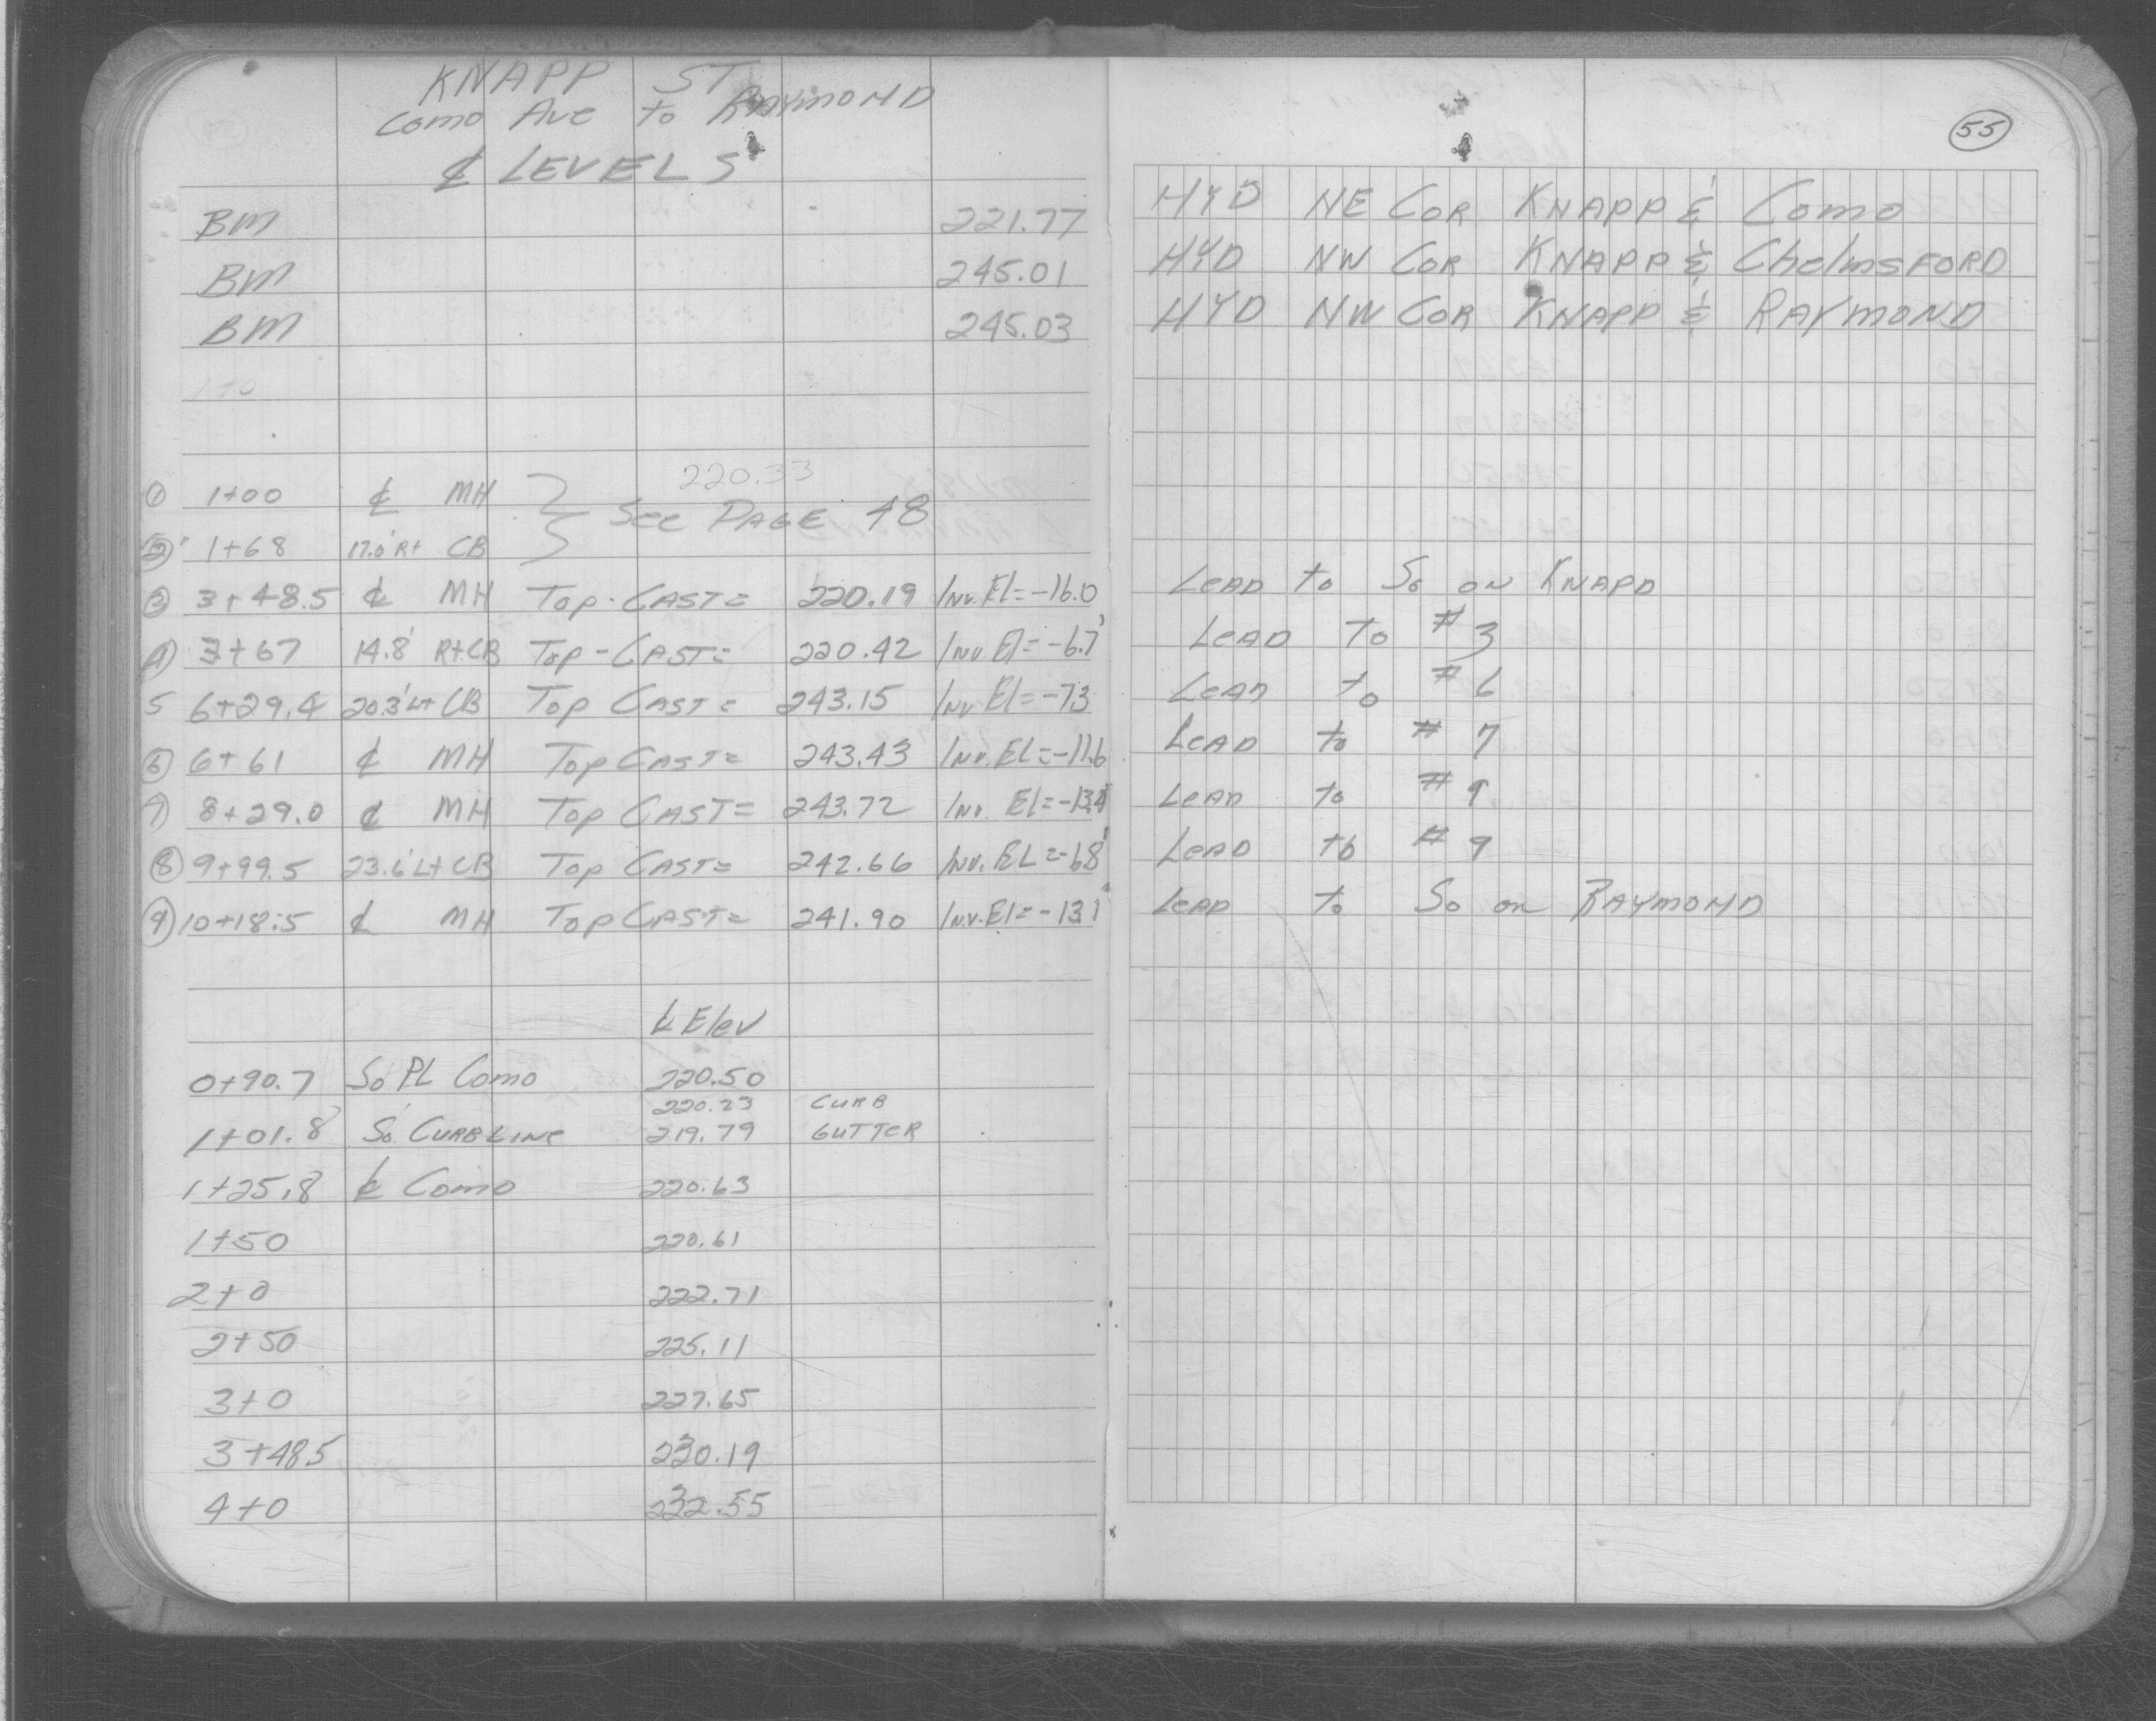 KNAPP ST
Como Ave to RAYMOND
℄ LEVELS
55
BM 221.77 HYD NE COR KNAPP & Como
BM 245.01 HYD NW COR KNAPP & ChelmsFORD
BM 245.03 HYD NW COR KNAPP & RAYMOND
1+0
220.33
① 1+00 ℄ MH
See PAGE 48
② 1+68 17.0' Rt CB
③ 3+48.5 ℄ MH Top-CAST= 220.19 Inv. El=-16.0 LEAD to So on KNAPP
④ 3+67 14.8' Rt CB Top-CAST= 220.42 Inv. El=-6.7' LEAD To #3
5 6+29.4 20.3' Lt CB Top CAST= 243.15 Inv. El=-7.3 LEAD to #6
⑥ 6+61 ℄ MH Top CAST= 243.43 Inv. EL=-11.6 LEAD to #7
⑦ 8+29.0 ℄ MH Top CAST= 243.72 Inv. El=-13.4 LEAD to #9
⑧ 9+99.5 23.6' Lt CB Top CAST= 242.66 Inv. EL=-6.8' LEAD to #9
⑨ 10+18.5 ℄ MH Top CAST= 241.90 Inv. El=-13.1' LEAD to So on RAYMOND
℄ Elev
0+90.7 So PL Como 220.50
220.23 CURB
1+01.8 So. CURBLINE 219.79 GUTTER
1+25.8 ℄ Como 220.63
1+50 220.61
2+0 222.71
2+50 225.11
3+0 227.65
3+48.5 230.19
4+0 232.55